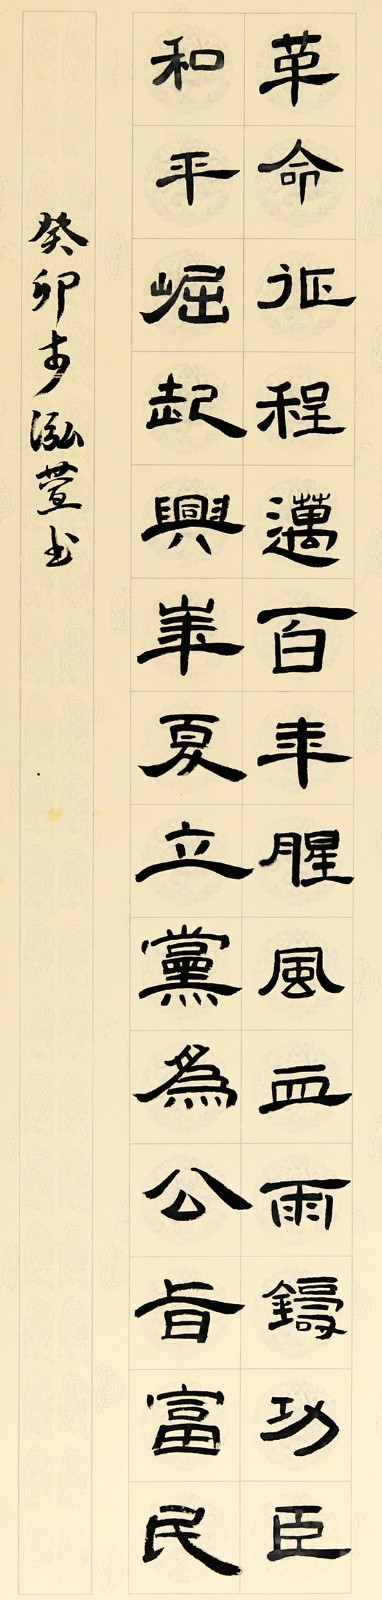 革命征程邁百年腥風血雨鑄功臣
和平崛起興華夏立黨為公旨富民
癸卯书泓萱书